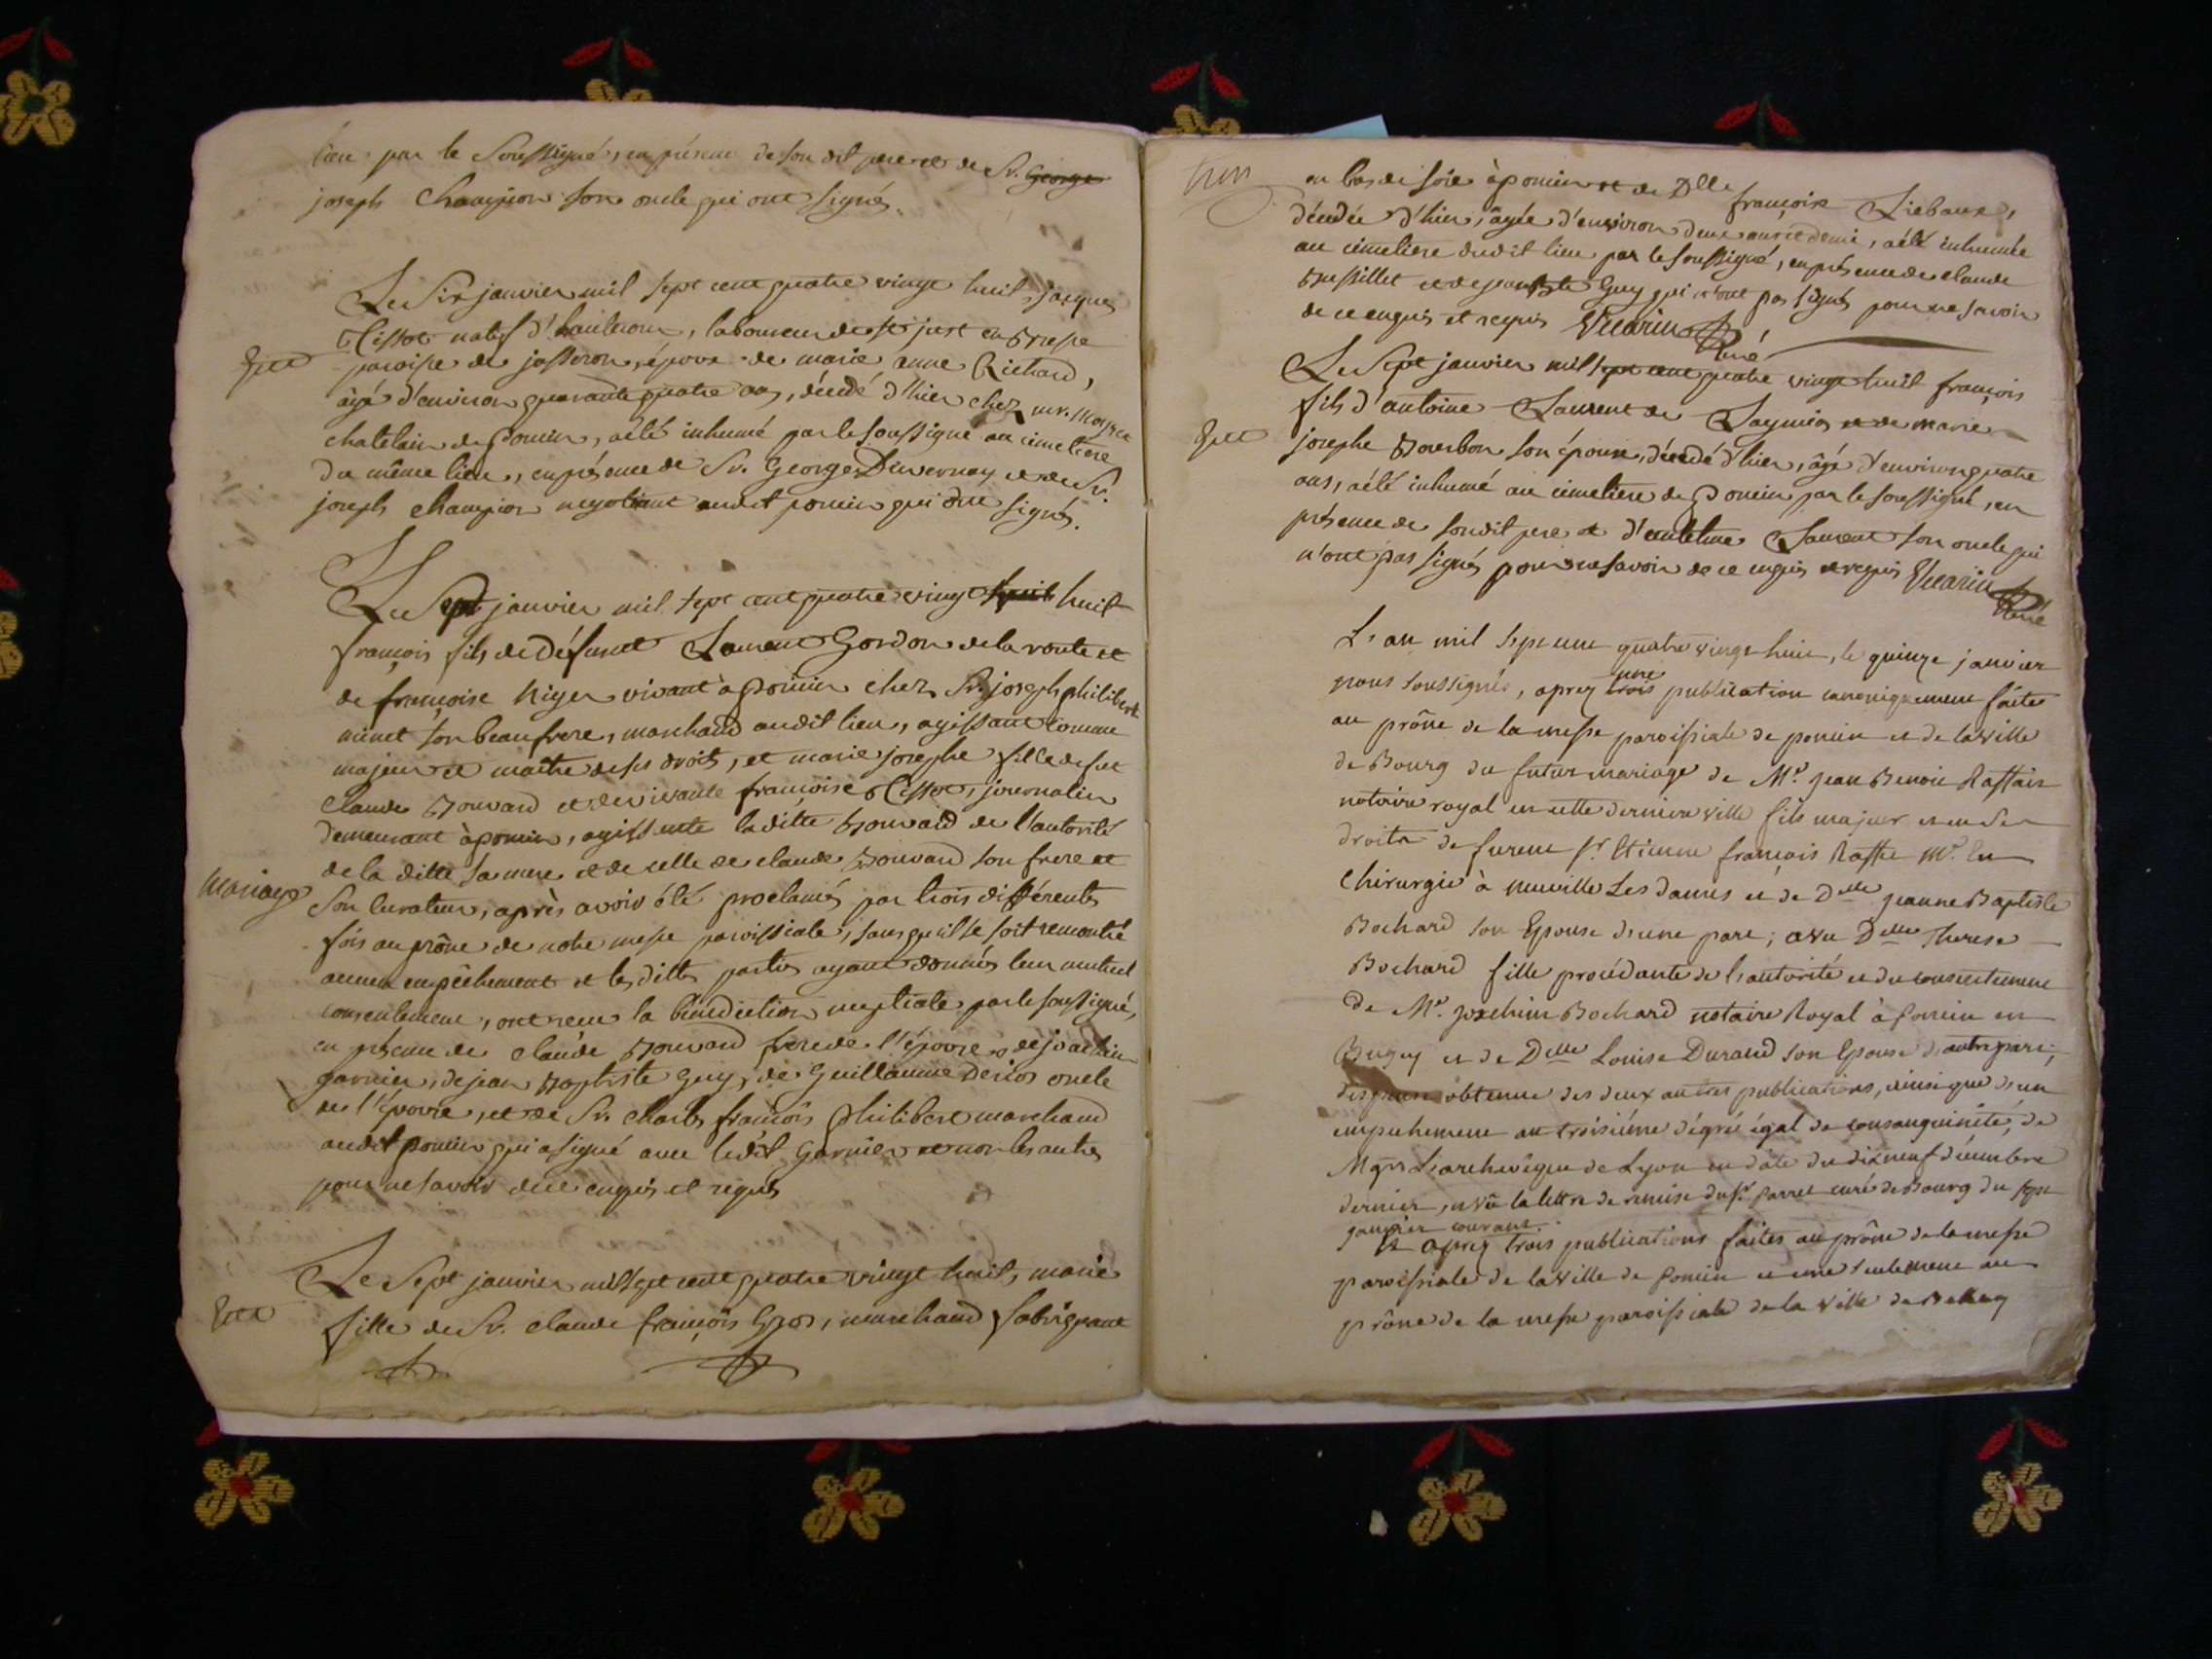 lieu par le soussigné, en présence de son dit pere et de Sr. George
joseph Champion son oncle qui ont signés.
Le Six janvier mil sept cent quatre vingt huit, jacques
Tissot natif d'hauteur, laboureur de st just en Bresse
paroisse de jasseron, époux de marie anne Richard,
âgé d'environ quarante quatre ans, décédé d'hier chez mr.
chatelain de poncin, a été inhumé par le soussigné au cimetiere
du même lieu, en présence de Sr. George Duvernay et de Sr.
joseph champion negotiant audit poncin qui ont signés.
Le Sept janvier mil sept cent quatre vingt huit huit
françois fils de Défunt Laurent Gordon de la route et
de françoise Niger vivant à poncin chez Sr. joseph philibert
minet son beaufrere, marchand audit lieu, agissant comme
majeur et maitre de ses droits, et marie josephe fille de fut
Claude Bouvard et de vivante françoise Tissot, journalier
demeurant à poncin, agissante laditte Bouvard de l'autorité
de la ditte sa mere et de celle de claude Bouvard son frere et
mariage
Son curateur, après avoir été proclamés par trois différentes
fois au prône de notre messe paroissiale, sans qu'il se soit rencontré
aucun empêchement et les dittes parties ayant donnés leur mutuel
consentement, ont recu la bénédiction nuptiale par le soussigné,
en présence de claude Bouvard frere de l'épouse, de joachim
garnier, de jean Baptiste Guy, de Guillaume oncle
de l'épouse, et de Sr. charles françois Philibert marchand
audit poncin qui a signé avec ledit garnier et non les autres
pour ne savoir de ce enquis et requis
Le Sept janvier mil sept cent quatre vingt huit, marie
fille de Sr. claude françois Gros, marchand fabriquant
en bas de soie à poncin et de Dlle françoise Liebaux,
décédée d'hier, âgée d'environ deux ans et demi, a été inhumée
au cimetiere dudit lieu par le soussigné, en présence de claude
Bussillet et de jean Bte Guy qui n'ont pas signés pour ne savoir
de ce enquis et requis Vuarin Curé
Le Sept janvier mil sept cent quatre vingt huit françois
fils d'antoine Laurent de et de marie
josephe Bourbon son épouse, décédé d'hier, âgé d'environ quatre
ans, a été inhumé au cimetiere de poncin par le soussigné, en
présence de sondit pere et d'anthelme Laurent son oncle qui
n'ont pas signés pour ne savoir de ce enquis et requis Vuarin Curé
L'an mil sept cent quatre vingt huit, le quinze janvier
nous soussignés, aprez trois une publication canoniquement faites
au prône de la messe paroissiale de poncin et de la ville
de Bourg du futur mariage de Me jean Benoit Raffin
notaire royal en cette derniere ville fils majeur et en ses
droits de furent sr. Etienne françois Me. en
Chirurgie à neuville Les dames et de Delle jeanne Baptiste
Bochard son Epouse d'une part; avec Delle Therese
Bochard fille procédante de l'autorité et du consentement
de Me. joachim Bochard notaire Royal à poncin en
Bugey et de Delle Louise Durand son Epouse d'autre part;
dispense obtenue des deux autres publications, ainsi que d'un
empechement au troisiéme dégré égal de consanguinité, de
Mgr L'archevêque de Lyon en date du dixneuf décembre
dernier, et vû la lettre de remise du sr. curé de Bourg du sept
janvier courant.
et aprez trois publications faites au prône de la messe
paroissiale de la ville de poncin et une seulement au
prône de la messe paroissiale de la ville de Belley